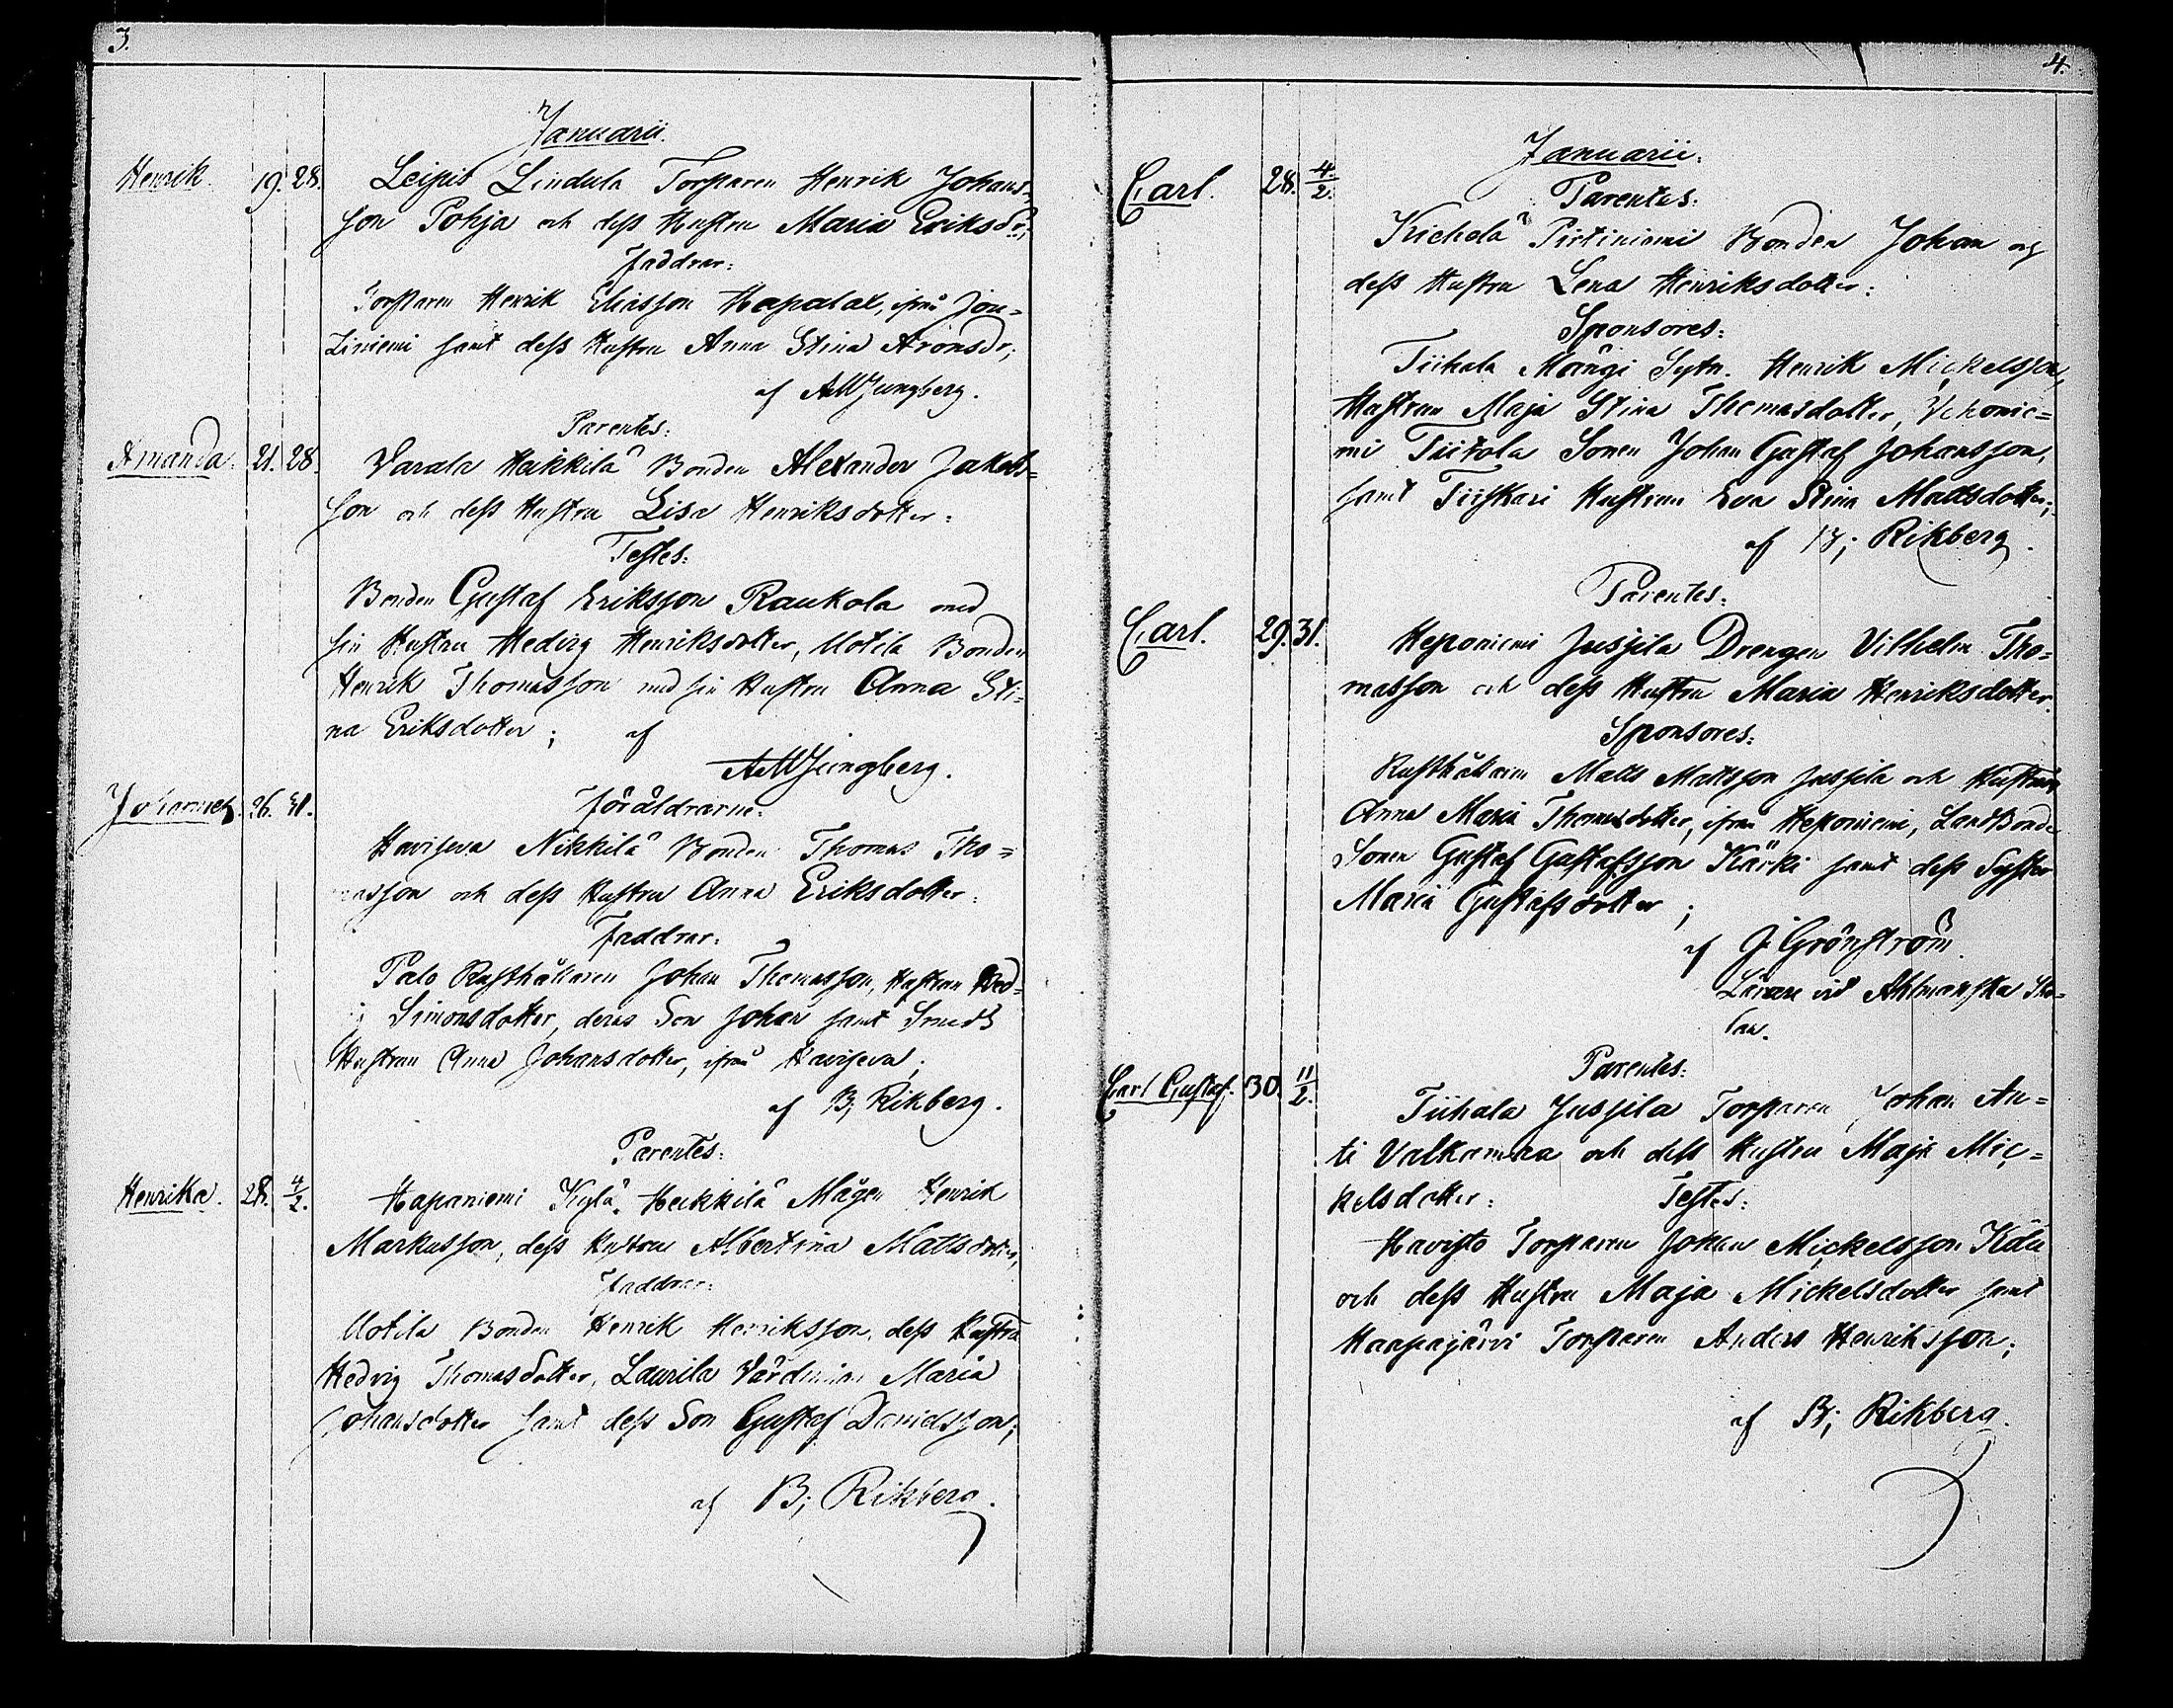 3.
Januarii.
Henrik. 19. 28. Leipis Lindula Torparen Henrik Johans-
son Pohja och dess Hustru Maria Eriksdr;
Faddrar:
Torparen Henrik Eliasson Hapalax, ifrån Jou-
ziniemi samt dess Hustru Anna Stina Aronsdr;
af AWLjungberg.
Parentes:
Amanda. 21. 28. Varala Heikkilä Bonden Alexander Jakobs-
son och dess Hustru Lisa Henriksdotter:
Testes:
Bonden Gustaf Eriksson Raukola med
sin Hustru Hedvig Henriksdotter, Uotila Bonden
Henrik Thomasson med sin Hustru Anna Sti-
na Eriksdotter; af
AWLjungberg.
Föräldrarne:
Johannes. 26. 31. Haviseva Nikkilä Bonden Thomas Tho-
masson och dess Hustru Anna Eriksdotter:
Faddrar:
Palo Rusthållaren Johan Thomasson, Hustrun Hed-
Simonsdotter, deras Son Johan samt Smeds
Hustrun Anna Johansdotter, ifrån Haviseva;
af B; Rikberg.
Parentes:
Henrika. 28. 4/2. Hapaniemi Kylä Heikkilä Mågen Henrik
Markusson, dess Hustru Albertina Mattsdotter,
Faddrar:
Uotila Bonden Henrik Henriksson, dess Hustru
Hedvig Thomasdotter, Laurila Värdinnan Maria
Johansdotter samt dess Son Gustaf Danielsson;
af B; Rikberg.
4.
Januarii.
Carl. 28. 4/2. Parentes:
Kichelä Pirtiniemi Bonden Johan och
dess Hustru Lena Henriksdotter:
Sponsores:
Tiihala Mängi Sytn. Henrik Mickelsson,
Hustrun Maja Stina Thomasdotter, Vehonie-
mi Tiitola Sonen Johan Gustaf Johansson,
samt Tiiskari Hustrun Eva Stina Mattsdotter;
af B; Rikberg.
Parentes:
Carl. 29. 31. Heponiemi Jussila Drengen Vilhelm Tho-
masson och dess Hustru Maria Henriksdotter.
Sponsores:
Rusthållaren Matts Mattsson Jussila och Hustrun
Anna Maria Thomasdotter, ifrån Heponiemi, Landbonde
Sonen Gustaf Gustafsson Kärki samt dess Syster
Maria Gustafsdotter;
af J. Grönström.
Lärare vid Ahlmanska Sko-
lan.
Parentes:
Carl Gustaf. 30. 11/2. Tiihala Jussila Torparen Johan An-
ti Valkamaa och dess Hustru Maja Mic-
kelsdotter: Testes:
Havisto Torparen Johan Mickelsson Kölu
och dess Hustru Maja Mickelsdotter samt
Haapajärvi Torparen Anders Henriksson;
af B; Rikberg.